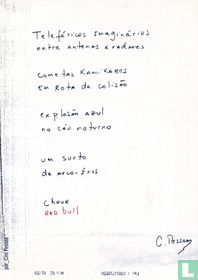 Telefericos Imaginários
entre antenas e radares
cometas Kamikazes
em Rota de colisão
explosão azul
no céu noturno
um surto
de arco-íris
chove
red bull
C. Pessoa
por_Ciro Pessoa